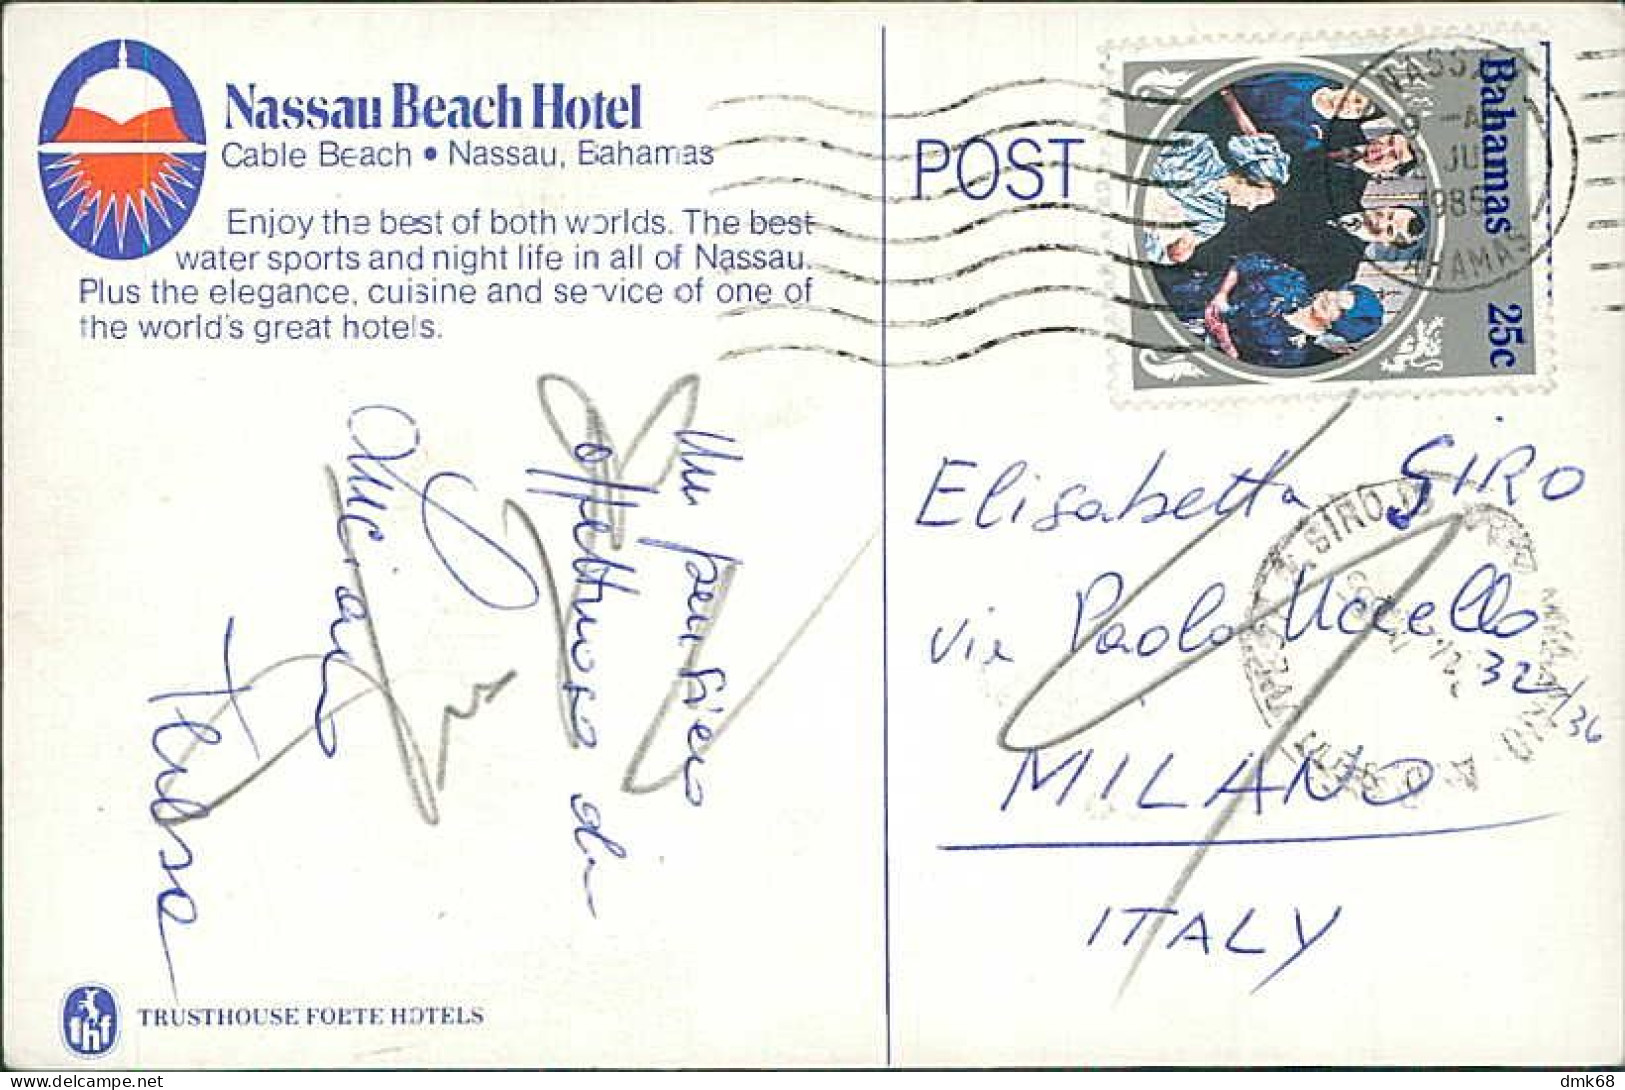 Nassau Beach Hotel
Cable Beach • Nassau, Bahamas
Enjoy the best of both worlds. The best
water sports and night life in all of Nassau.
Plus the elegance, cuisine and service of one of
the world's great hotels.
Un pensiero
affettuoso di
Luciano
TRUSTHOUSE FORTE HOTELS
thf
POST
Bahamas 25c
NASSAU
1985
BAHAMAS
Elisabetta SIRO
via Paolo Uccello
32/136
MILANO
ITALY
SIRO
dmk68